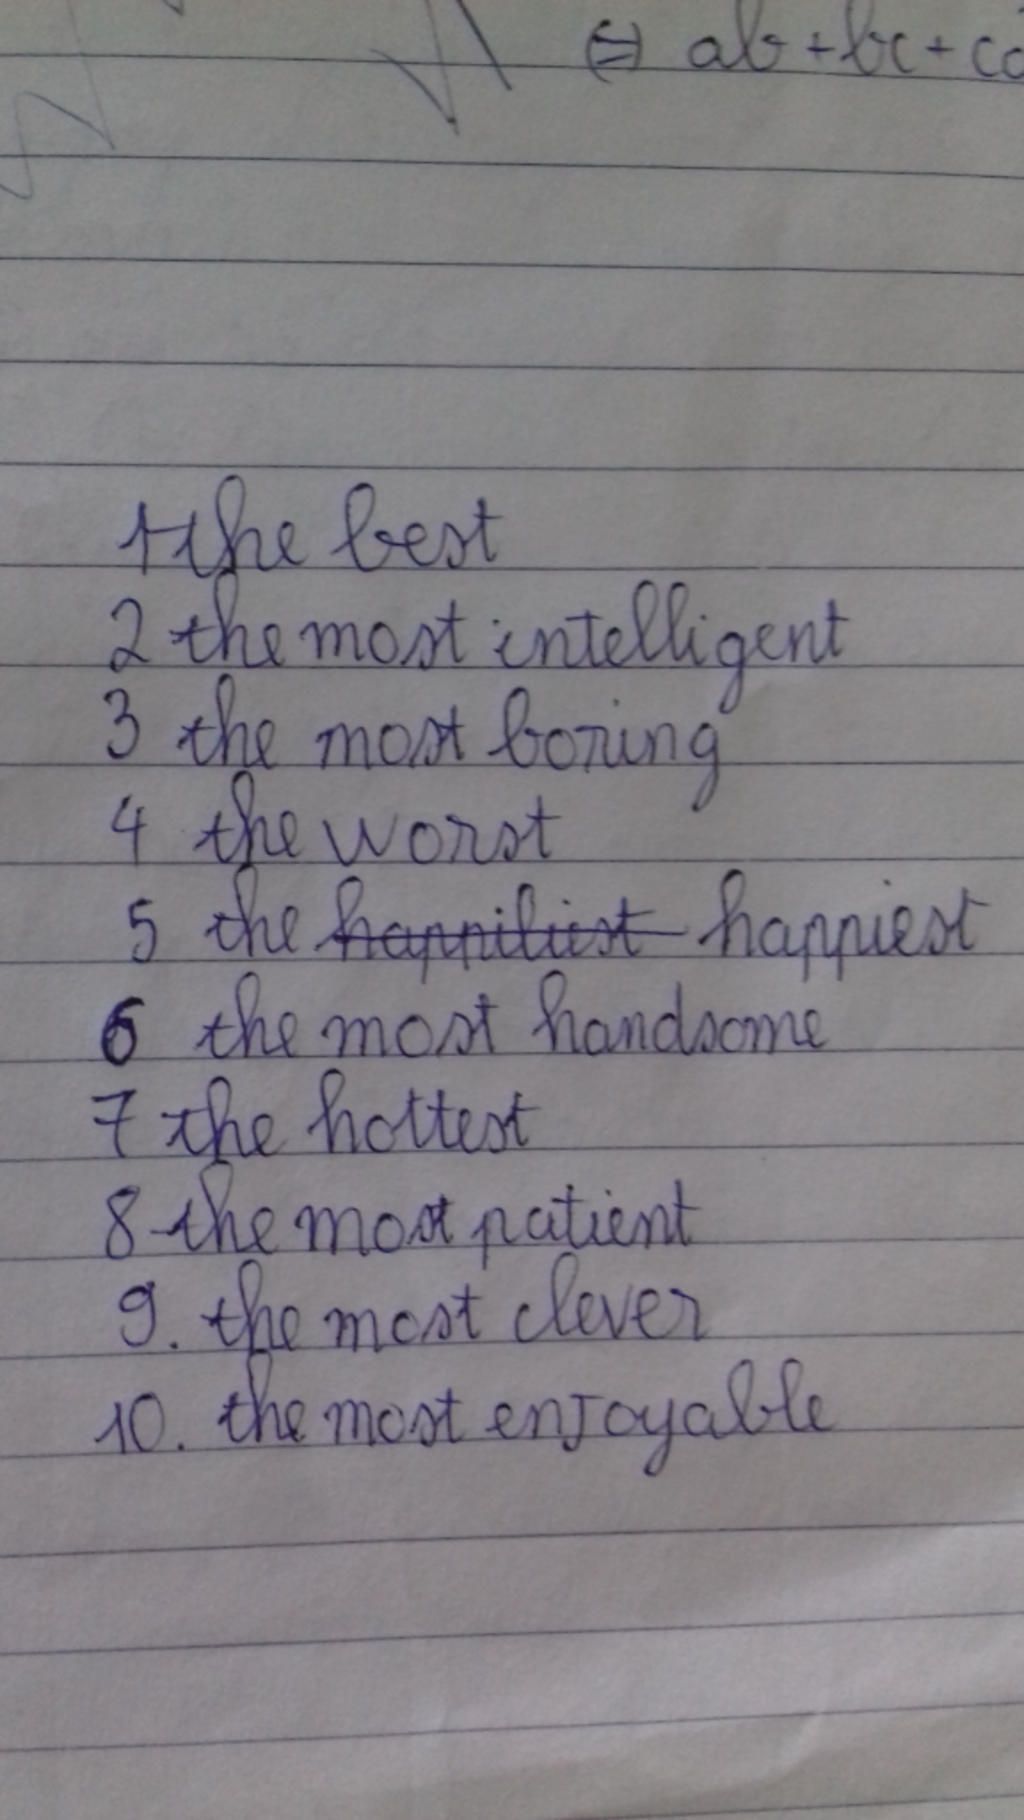 ⇔ ab+bc+ca
1 the best
2 the most intelligent
3 the most boring
4 the worst
5 the happiliest happiest
6 the most handsome
7 the hottest
8 the most patient
9. the most clever
10. the most enjoyable